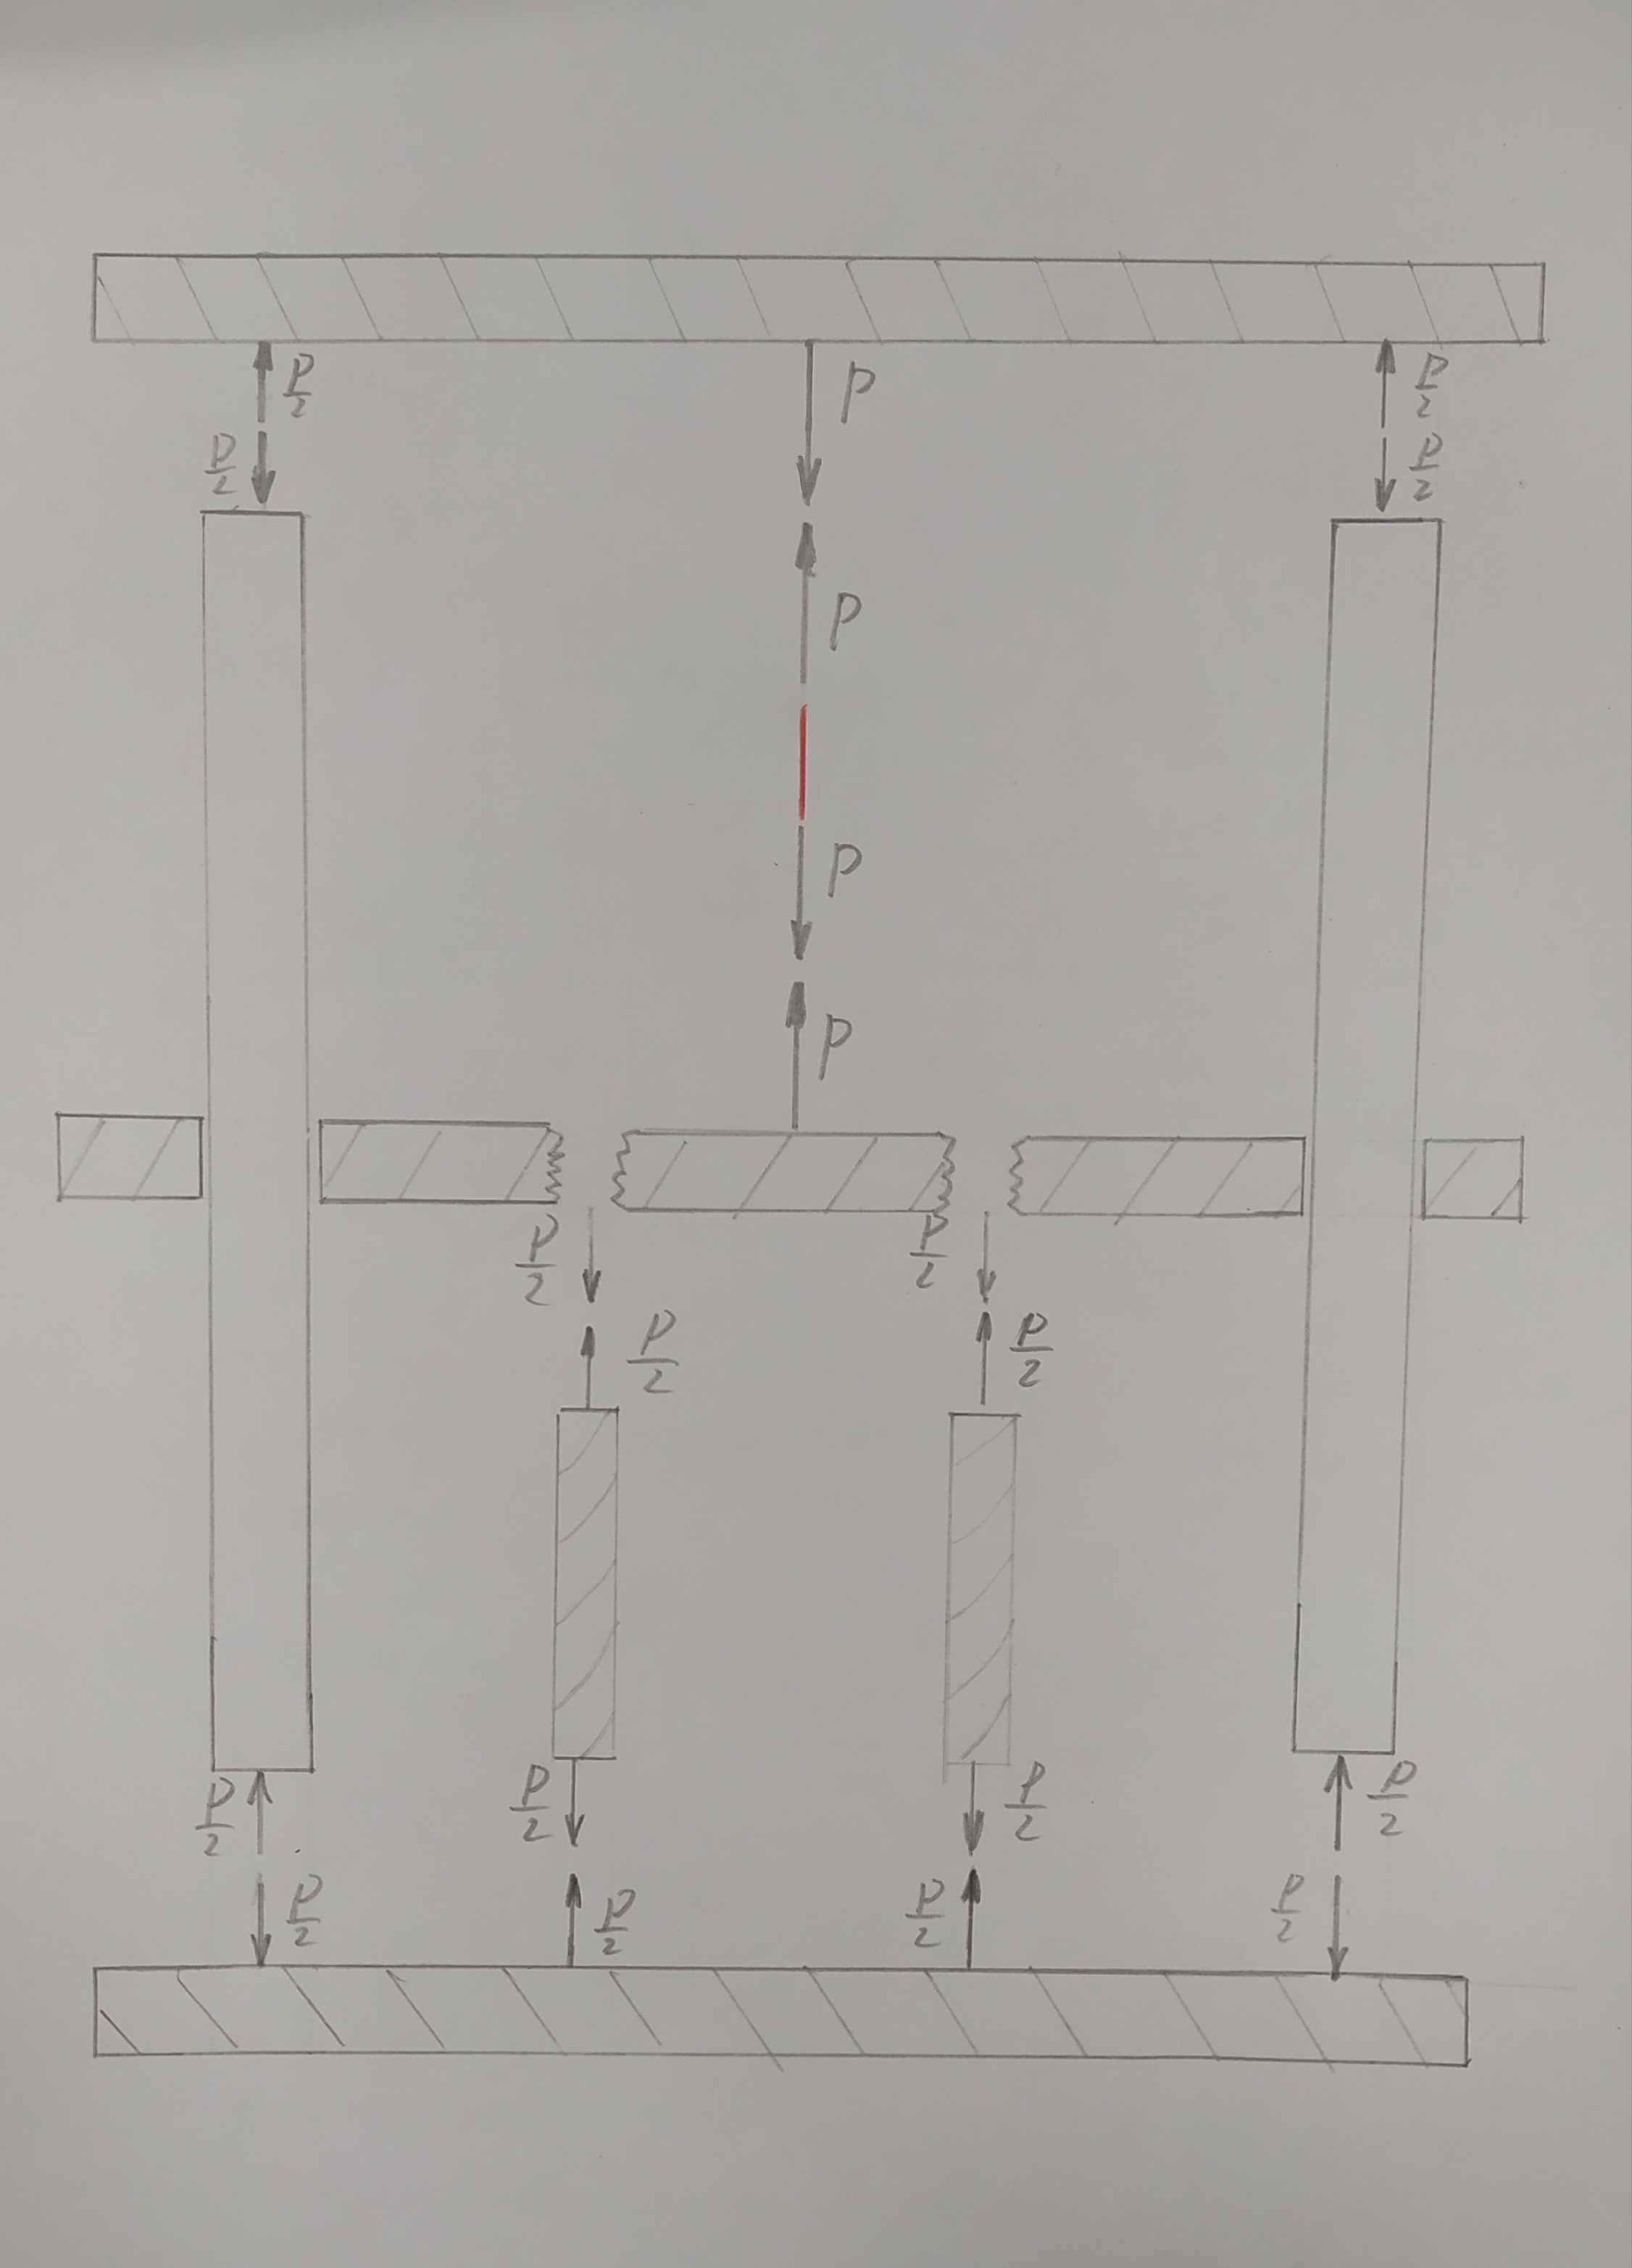 P/2
P
P/2
P/2
P/2
P
P
P
P/2
P/2
P/2
P/2
P/2
P/2
P/2
P/2
P/2
P/2
P/2
P/2